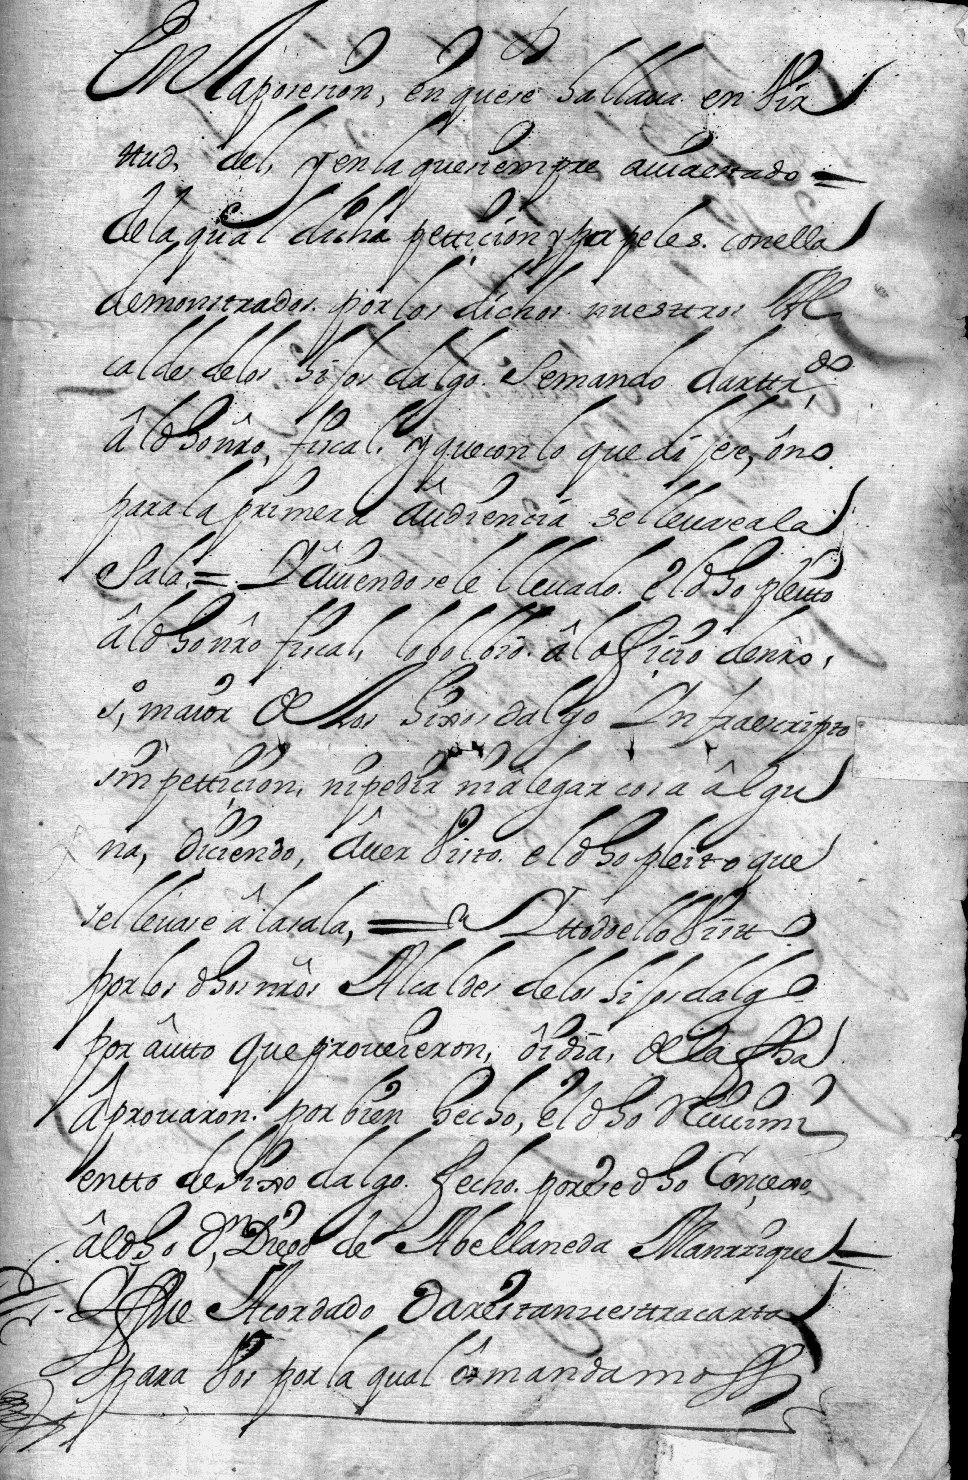 En la posesion, en que se hallaua en vir
ttud, del, y en la que siempre auia estado =
de la qual dicha petticion, y papeles. con ella
demonstrados. por los dichos nuesttros Al
caldes de los hijos dalgo. Se mando dar ttrdo
â l dho nro, fiscal. y que con lo que dijese, ô no
para la primera Audiencia se lleuase a la
Sala. = Y auiendose le lleuado. el dho pleitto
â l dho nro fiscal, lo boluio. â l oficio de nro,
s, maior de Los hixos dalgo Infraescripto
sin petticion, ni pedir ni alegar cosa âlgu
na, diciendo, âuer visto. el dho pleito que
se lleuase â la sala, = Y ttodo ello vistto
por los dhos nros Alcaldes de los hijos dalgo
por âutto que proueieron, ôi dia, de la fha
âprouaron. por bien hecho, el dho Reciuimi
entto de hixo dalgo. fecho. por ese dho Conçejo,
âl dho Dn, Diego de Abellaneda Manrrique =
Y fue Acordado dar esta nuesttra cartta
para vos por la qual ôs mandamos